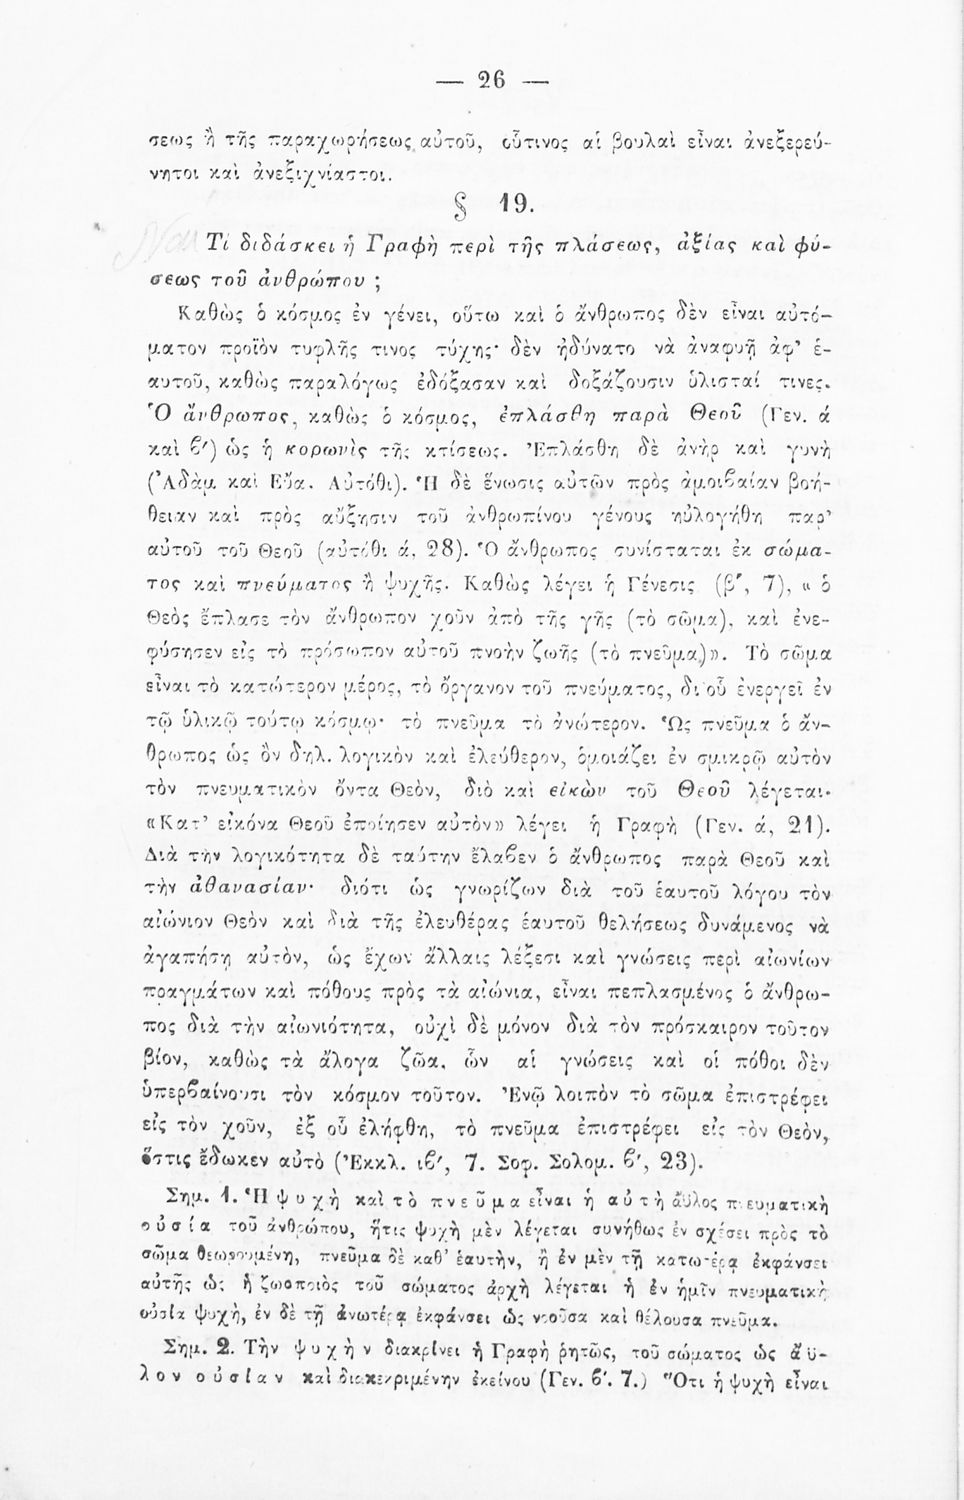 — 26 —
σεως ἢ τῆς παραχωρήσεως αὐτοῦ, οὗτινος αἱ βουλαὶ εἶναι ἀνεξερεύ-
νητοι καὶ ἀνεξιχνίαστοι.
§ 19.
Τί διδάσκει ἡ Γραφὴ περὶ τῆς πλάσεως, ἀξίας καὶ φύ-
σεως τοῦ ἀνθρώπου ;
Καθὼς ὁ κόσμος ἐν γένει, οὕτω καὶ ὁ ἄνθρωπος δὲν εἶναι αὐτό-
ματον προϊὸν τυφλῆς τινος τύχης· δὲν ἠδύνατο νὰ ἀναφυῇ ἀφ’ ἑ-
αυτοῦ, καθὼς παραλόγως ἐδόξασαν καὶ δοξάζουσιν ὑλισταί τινες.
Ὁ ἄνθρωπος, καθὼς ὁ κόσμος, ἐπλάσθη παρὰ Θεοῦ (Γεν. ά
καὶ ϐ′) ὡς ἡ κορωνὶς τῆς κτίσεως. Ἐπλάσθη δὲ ἀνὴρ καὶ γυνὴ
(Ἀδὰμ καὶ Εὔα. Αὐτόθι). Ἡ δὲ ἕνωσις αὐτῶν πρὸς ἀμοιϐαίαν βοή-
θειαν καὶ πρὸς αὔξησιν τοῦ ἀνθρωπίνου γένους ηὐλογήθη παρ’
αὐτοῦ τοῦ Θεοῦ (αὐτόθι ά, 28). Ὁ ἄνθρωπος συνίσταται ἐκ σώμα-
τος καὶ πνεύματος ἢ ψυχῆς. Καθὼς λέγει ἡ Γένεσις (β′, 7), « ὁ
Θεὸς ἔπλασε τὸν ἄνθρωπον χοῦν ἀπὸ τῆς γῆς (τὸ σῶμα), καὶ ἐνε-
φύσησεν εἰς τὸ πρόσωπον αὐτοῦ πνοὴν ζωῆς (τὸ πνεῦμα)». Τὸ σῶμα
εἶναι τὸ κατώτερον μέρος, τὸ ὄργανον τοῦ πνεύματος, δι’ οὗ ἐνεργεῖ ἐν
τῷ ὑλικῷ τούτῳ κόσμῳ· τὸ πνεῦμα τὸ ἀνώτερον. Ὡς πνεῦμα ὁ ἄν-
θρωπος ὡς ὂν δηλ. λογικὸν καὶ ἐλεύθερον, ὁμοιάζει ἐν σμικρῷ αὐτὸν
τὸν πνευματικὸν ὄντα Θεὸν, διὸ καὶ εἰκὼν τοῦ Θεοῦ λέγεται·
«Κατ’ εἰκόνα Θεοῦ ἐποίησεν αὐτὸν» λέγει ἡ Γραφὴ (Γεν. ά, 21).
Διὰ τὴν λογικότητα δὲ ταύτην ἔλαϐεν ὁ ἄνθρωπος παρὰ Θεοῦ καὶ
τὴν ἀθανασίαν· διότι ὡς γνωρίζων διὰ τοῦ ἑαυτοῦ λόγου τὸν
αἰώνιον Θεὸν καὶ διὰ τῆς ἐλευθέρας ἑαυτοῦ θελήσεως δυνάμενος νὰ
ἀγαπήσῃ αὐτὸν, ὡς ἔχων ἄλλαις λέξεσι καὶ γνώσεις περὶ αἰωνίων
πραγμάτων καὶ πόθους πρὸς τὰ αἰώνια, εἶναι πεπλασμένος ὁ ἄνθρω-
πος διὰ τὴν αἰωνιότητα, οὐχὶ δὲ μόνον διὰ τὸν πρόσκαιρον τοῦτον
βίον, καθὼς τὰ ἄλογα ζῶα, ὧν αἱ γνώσεις καὶ οἱ πόθοι δὲν
ὑπερϐαίνουσι τὸν κόσμον τοῦτον. Ἐνῷ λοιπὸν τὸ σῶμα ἐπιστρέφει
εἰς τὸν χοῦν, ἐξ οὗ ἐλήφθη, τὸ πνεῦμα ἐπιστρέφει εἰς τὸν Θεὸν,
ὅστις ἔδωκεν αὐτὸ (Ἐκκλ. ιϐ′, 7. Σοφ. Σολομ. ϐ′, 23).
Σημ. 1. Ἡ ψυχὴ καὶ τὸ πνεῦμα εἶναι ἡ αὐτὴ ἄϋλος πνευματικὴ
οὐσία τοῦ ἀνθρώπου, ἥτις ψυχὴ μὲν λέγεται συνήθως ἐν σχέσει πρὸς τὸ
σῶμα θεωρουμένη, πνεῦμα δὲ καθ’ ἑαυτὴν, ἢ ἐν μὲν τῇ κατωτέρᾳ ἐκφάνσει
αὐτῆς ὡς ἡ ζωοποιὸς τοῦ σώματος ἀρχὴ λέγεται ἡ ἐν ἡμῖν πνευματικὴ
οὐσία ψυχὴ, ἐν δὲ τῇ ἀνωτέρᾳ ἐκφάνσει ὡς νοοῦσα καὶ θέλουσα πνεῦμα.
Σημ. 2. Τὴν ψυχὴν διακρίνει ἡ Γραφὴ ῥητῶς, τοῦ σώματος ὡς ἄϋ-
λον οὐσίαν καὶ διακεκριμένην ἐκείνου (Γεν. ϐ′. 7.) Ὅτι ἡ ψυχὴ εἶναι